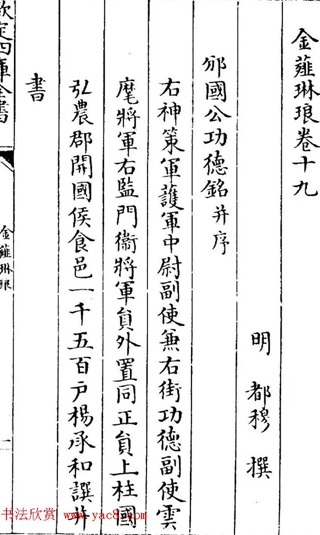 金薤琳琅卷十九
明 都穆 撰
邠國公功德銘并序
右神策軍護軍中尉副使兼右街功德副使雲
麾將軍右監門衛將軍員外置同正員上柱國
弘農郡開國侯食邑一千五百戶楊承和譔并
書
欽定四庫全書
金薤琳琅
一
书法欣赏 www.yac8.com